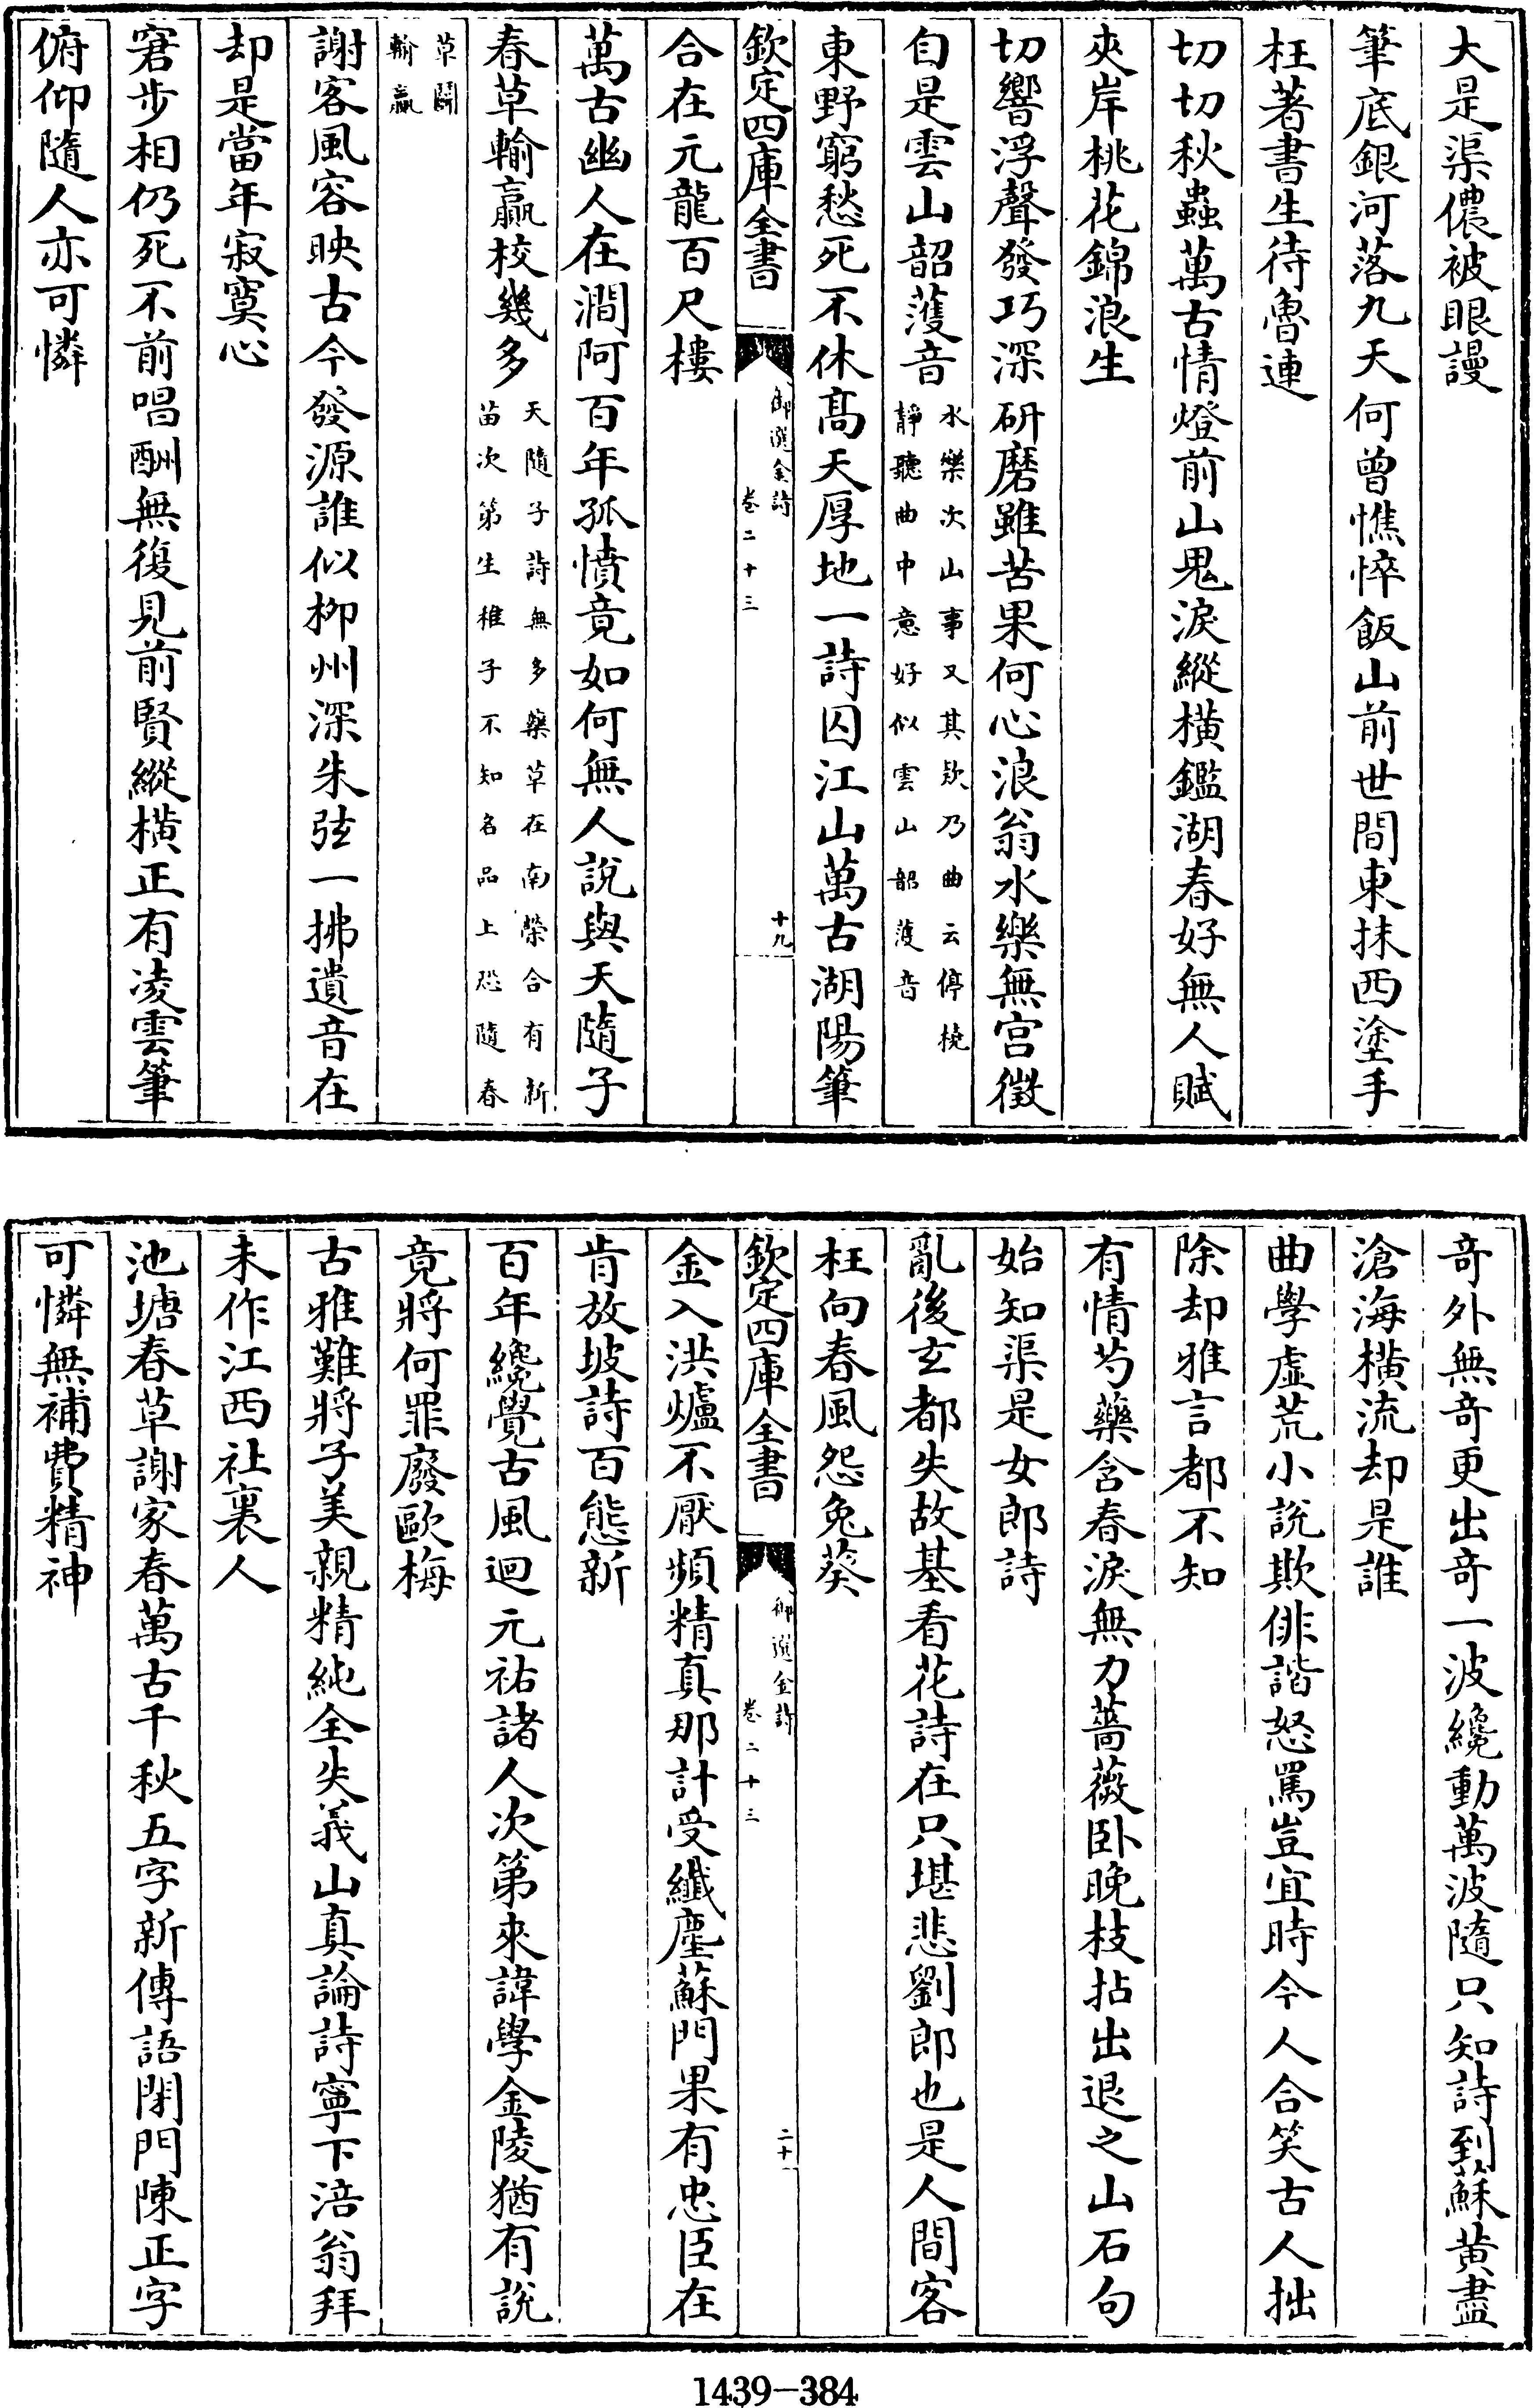 大是渠儂被眼謾
筆底銀河落九天何曾憔悴飯山前世間東抹西塗手
枉著書生待魯連
切切秋蟲萬古情燈前山鬼淚縱橫鑑湖春好無人賦
夾岸桃花錦浪生
切響浮聲發巧深研磨雖苦果何心浪翁水樂無宫徵
自是雲山韶濩音水樂次山事又其欵乃曲云停橈
靜聽曲中意好似雲山韶濩音
東野窮愁死不休髙天厚地一詩囚江山萬古湖陽筆
欽定四庫全書
御選金詩
卷二十三
十九
合在元龍百尺樓
萬古幽人在澗阿百年孤憤竟如何無人說與天隨子
春草輸贏校幾多天隨子詩無多藥草在南榮合有新
苗次第生稚子不知名品上恐隨春
草鬬
輸贏
謝客風容映古今發源誰似柳州深朱弦一拂遺音在
却是當年寂寞心
窘步相仍死不前唱酬無復見前賢縱橫正有凌雲筆
俯仰隨人亦可憐
竒外無竒更出竒一波纔動萬波隨只知詩到蘇黄盡
滄海橫流却是誰
曲學虛荒小說欺俳諧怒罵豈宜時今人合笑古人拙
除却雅言都不知
有情芍藥含春淚無力薔薇卧晚枝拈出退之山石句
始知渠是女郎詩
亂後玄都失故基看花詩在只堪悲劉郎也是人間客
枉向春風怨兔葵
欽定四庫全書
御選金詩
卷二十三
二十
金入洪爐不厭頻精真那計受纖塵蘇門果有忠臣在
肯放坡詩百態新
百年纔覺古風迴元祐諸人次第來諱學金陵猶有說
竟將何罪廢歐梅
古雅難將子美親精純全失義山真論詩寧下涪翁拜
未作江西社裏人
池塘春草謝家春萬古千秋五字新傳語閉門陳正字
可憐無補費精神
1439-384